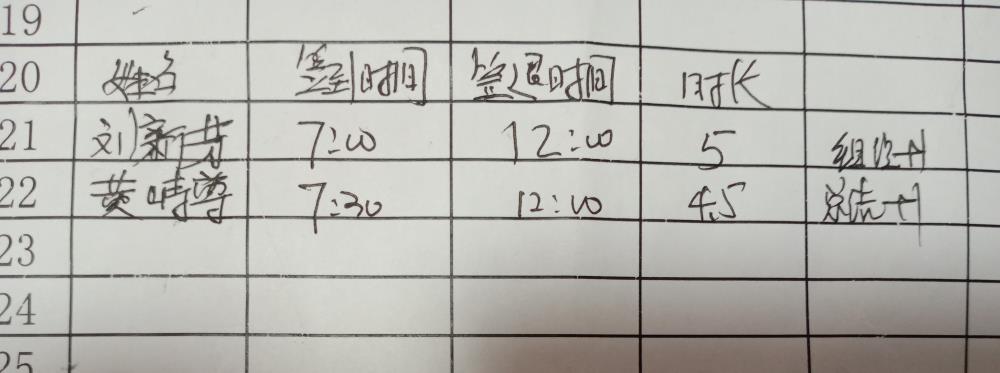 19
20 姓名 签到时间 签退时间 时长
21 刘新芳 7:00 12:00 5 +1
22 黄 7:30 12:00 4.5 +1
23
24
25